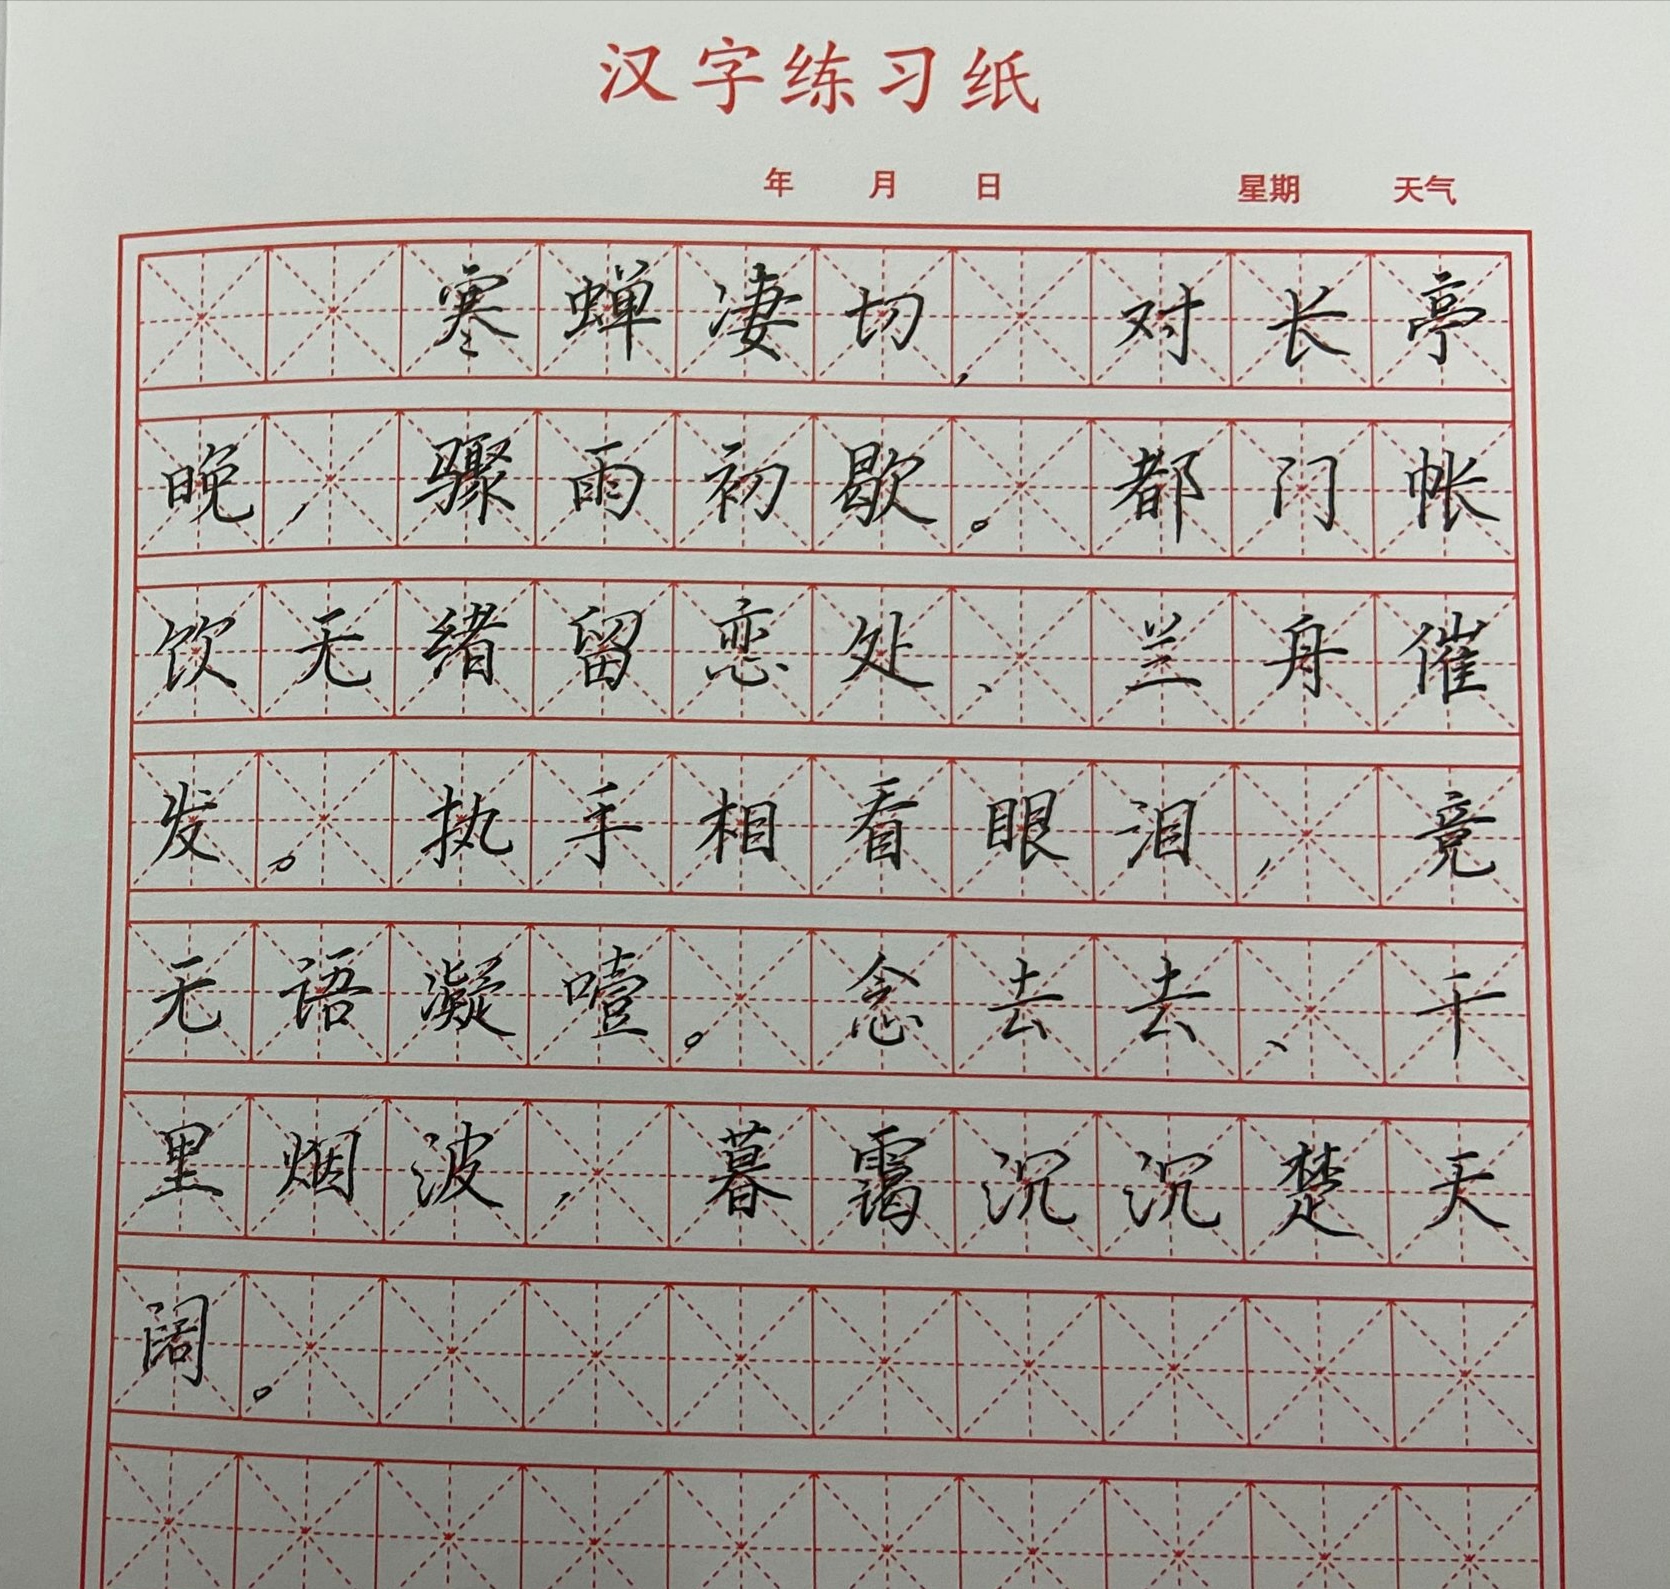 汉字练习纸
年 月 日 星期 天气
寒蝉凄切，对长亭
晚，骤雨初歇。都门帐
饮无绪留恋处、兰舟催
发。执手相看眼泪，竟
无语凝噎。念去去、千
里烟波，暮霭沉沉楚天
阔。